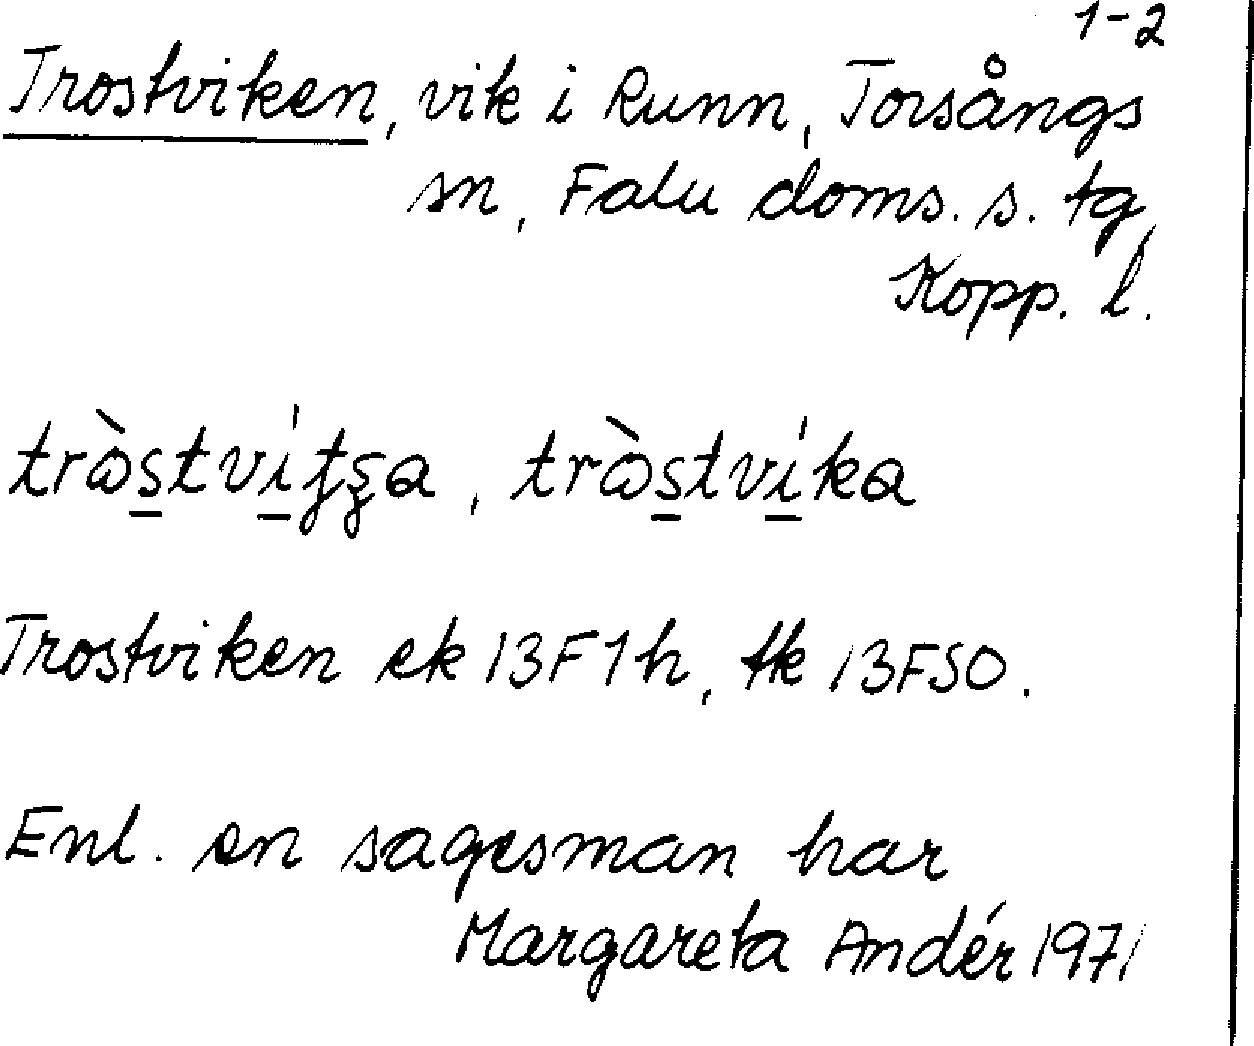 1-2
Trostviken, vik i Runn, Torsångs
sn, Falu doms. s. tg,
Kopp. l.
tròstvíka
Trostviken ek 13F1h, tk 13FSO.
Enl. en sagesman har
Margareta Andér 1971